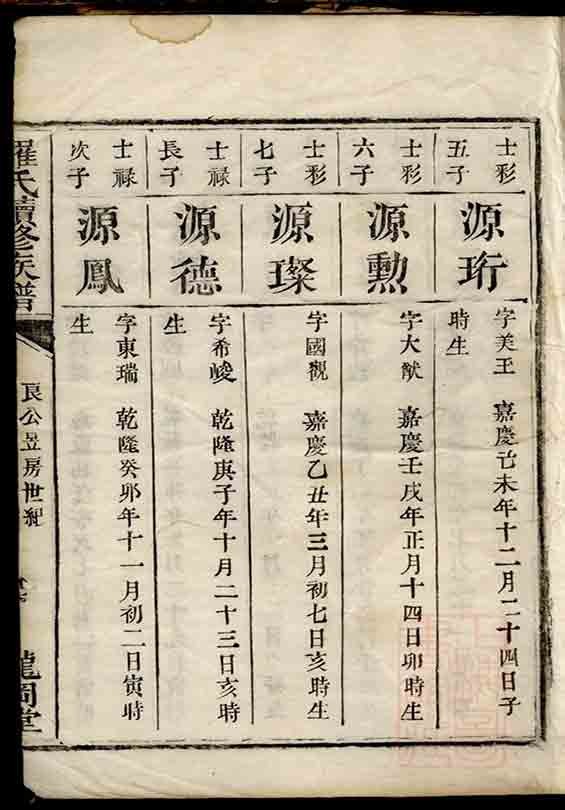 士彩
五子
源珩
字美玉 嘉慶己未年十二月二十四日子
時生
士彩
六子
源勳
字大猷 嘉慶壬戌年正月十四日卯時生
士彩
七子
源璨
字國觀 嘉慶乙丑年三月初七日亥時生
士祿
長子
源德
字希峻 乾隆庚子年十月二十三日亥時
生
士祿
次子
源鳳
字東瑞 乾隆癸卯年十一月初二日寅時
生
羅氏續修族譜
良公昱房世紀
龍岡堂